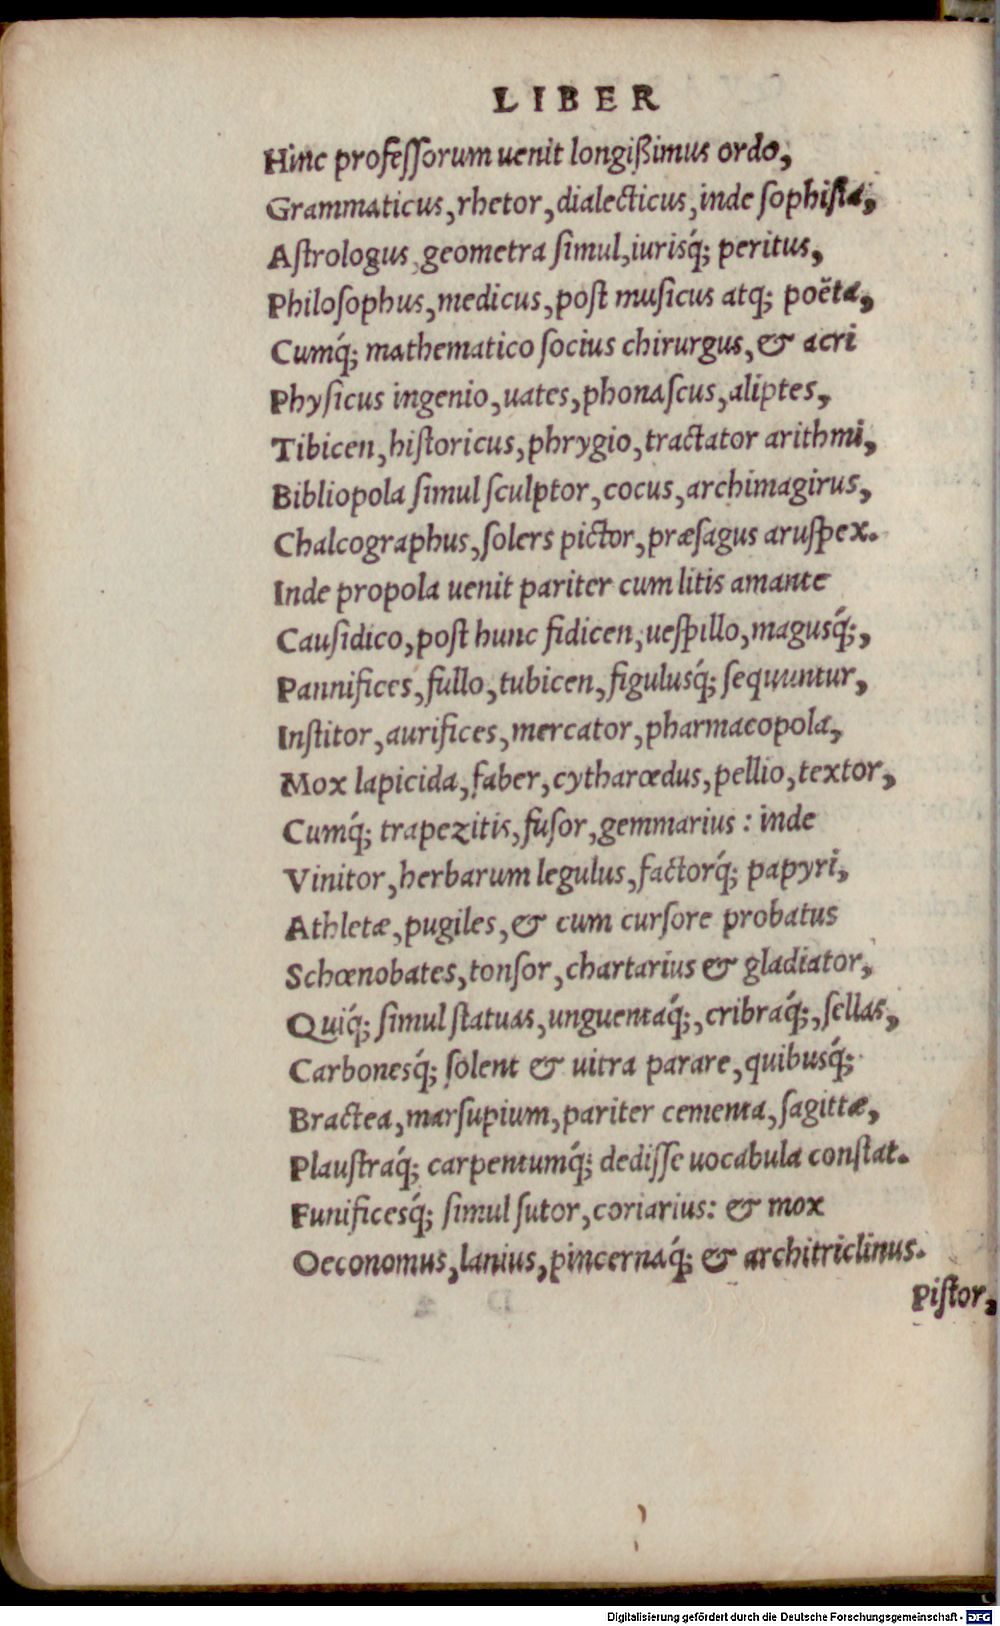 LIBER
Hinc professorum uenit longißimus ordo,
Grammaticus, rhetor, dialecticus, inde sophista,
Astrologus, geometra simul, iurisq́; peritus,
Philosophus, medicus, post musicus atq; poëta,
Cumq́; mathematico socius chirurgus, & acri
Physicus ingenio, uates, phonascus, aliptes,
Tibicen, historicus, phrygio, tractator arithmi,
Bibliopola simul sculptor, cocus, archimagirus,
Chalcographus, solers pictor, præsagus aruspex.
Inde propola uenit pariter cum litis amante
Causidico, post hunc fidicen, uespillo, magusq́;,
Pannifices, fullo, tubicen, figulusq́; sequuntur,
Institor, aurifices, mercator, pharmacopola,
Mox lapicida, faber, cytharœdus, pellio, textor,
Cumq́; trapezitis, fusor, gemmarius: inde
Vinitor, herbarum legulus, factorq́; papyri,
Athletæ, pugiles, & cum cursore probatus
Schœnobates, tonsor, chartarius & gladiator,
Quiq́; simul statuas, unguentaq́;, cribraq́;, sellas,
Carbonesq́; solent & uitra parare, quibusq́;
Bractea, marsupium, pariter cementa, sagittæ,
Plaustraq́; carpentumq́; dedisse uocabula constat.
Funificesq́; simul sutor, coriarius: & mox
Oeconomus, lanius, pincernaq́; & architriclinus.
Pistor,
Digitalisierung gefördert durch die Deutsche Forschungsgemeinschaft - DFG